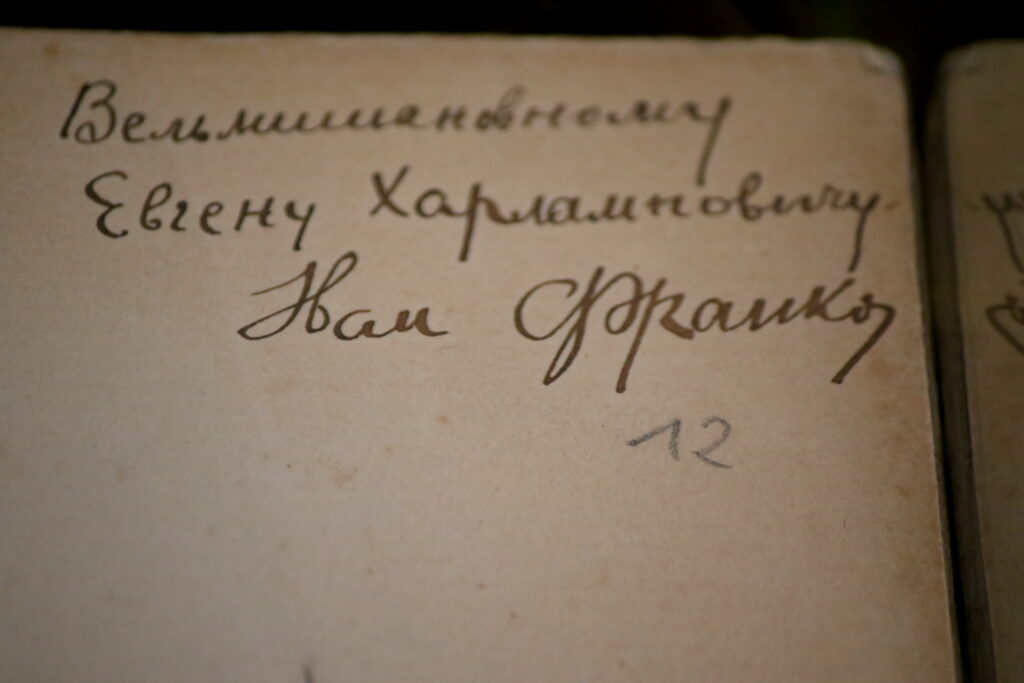 Вельмишановному
Евгену Харламповичу
Іван Франко
12